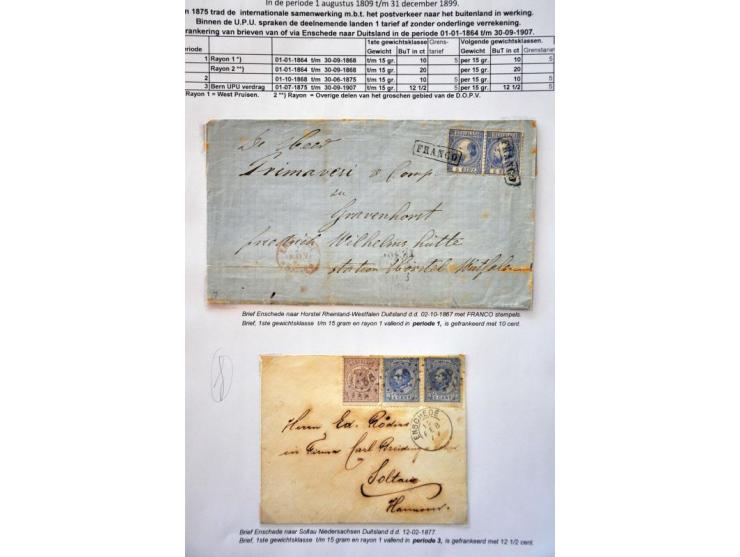 In de periode 1 augustus 1809 t/m 31 december 1899.
n 1875 trad de internationale samenwerking m.b.t. het postverkeer naar het buitenland in werking.
Binnen de U.P.U. spraken de deelnemende landen 1 tarief af zonder onderlinge verrekening.
rankering van brieven van of via Enschede naar Duitsland in de periode 01-01-1864 t/m 30-09-1907.
1ste gewichtsklasse Grens- Volgende gewichtsklassen.
eriode Gewicht BuT in ct tarief Gewicht BuT in ct Grenstarief
1 Rayon 1 *) 01-01-1864 t/m 30-09-1868 t/m 15 gr. 10 5 per 15 gr. 10 5
Rayon 2 **) 01-01-1864 t/m 30-09-1868 t/m 15 gr. 20 per 15 gr. 20
2 01-10-1868 t/m 30-06-1875 t/m 15 gr. 10 5 per 15 gr. 10 5
3 Bern UPU verdrag 01-07-1875 t/m 30-09-1907 t/m 15 gr. 12 1/2 5 per 15 gr. 12 1/2 5
Rayon 1 = West Pruisen. 2 **) Rayon = Overige delen van het groschen gebied van de D.O.P.V.
FRANCO
FRANCO
5 CENT
De Heer
Primaveri & Comp.
zu
Gravenhorst
friedrich Wilhelms hütte
station Hörstel Westfalen
Brief Enschede naar Horstel Rheinland-Westfalen Duitsland d.d. 02-10-1867 met FRANCO stempels.
Brief, 1ste gewichtsklasse t/m 15 gram en rayon 1 vallend in periode 1, is gefrankeerd met 10 cent.
8
ENSCHEDE
12
FEB
Herrn Ed. Röders
in Firma Carl
Soltau
Hannover
Brief Enschede naar Soltau Niedersachsen Duitsland d.d. 12-02-1877
Brief, 1ste gewichtsklasse t/m 15 gram en rayon 1 vallend in periode 3, is gefrankeerd met 12 1/2 cent.